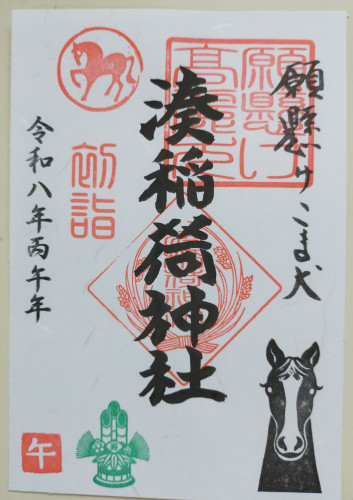 願懸けこま犬
願懸け高麗犬
湊稲荷神社
初詣
令和八年丙午年
午